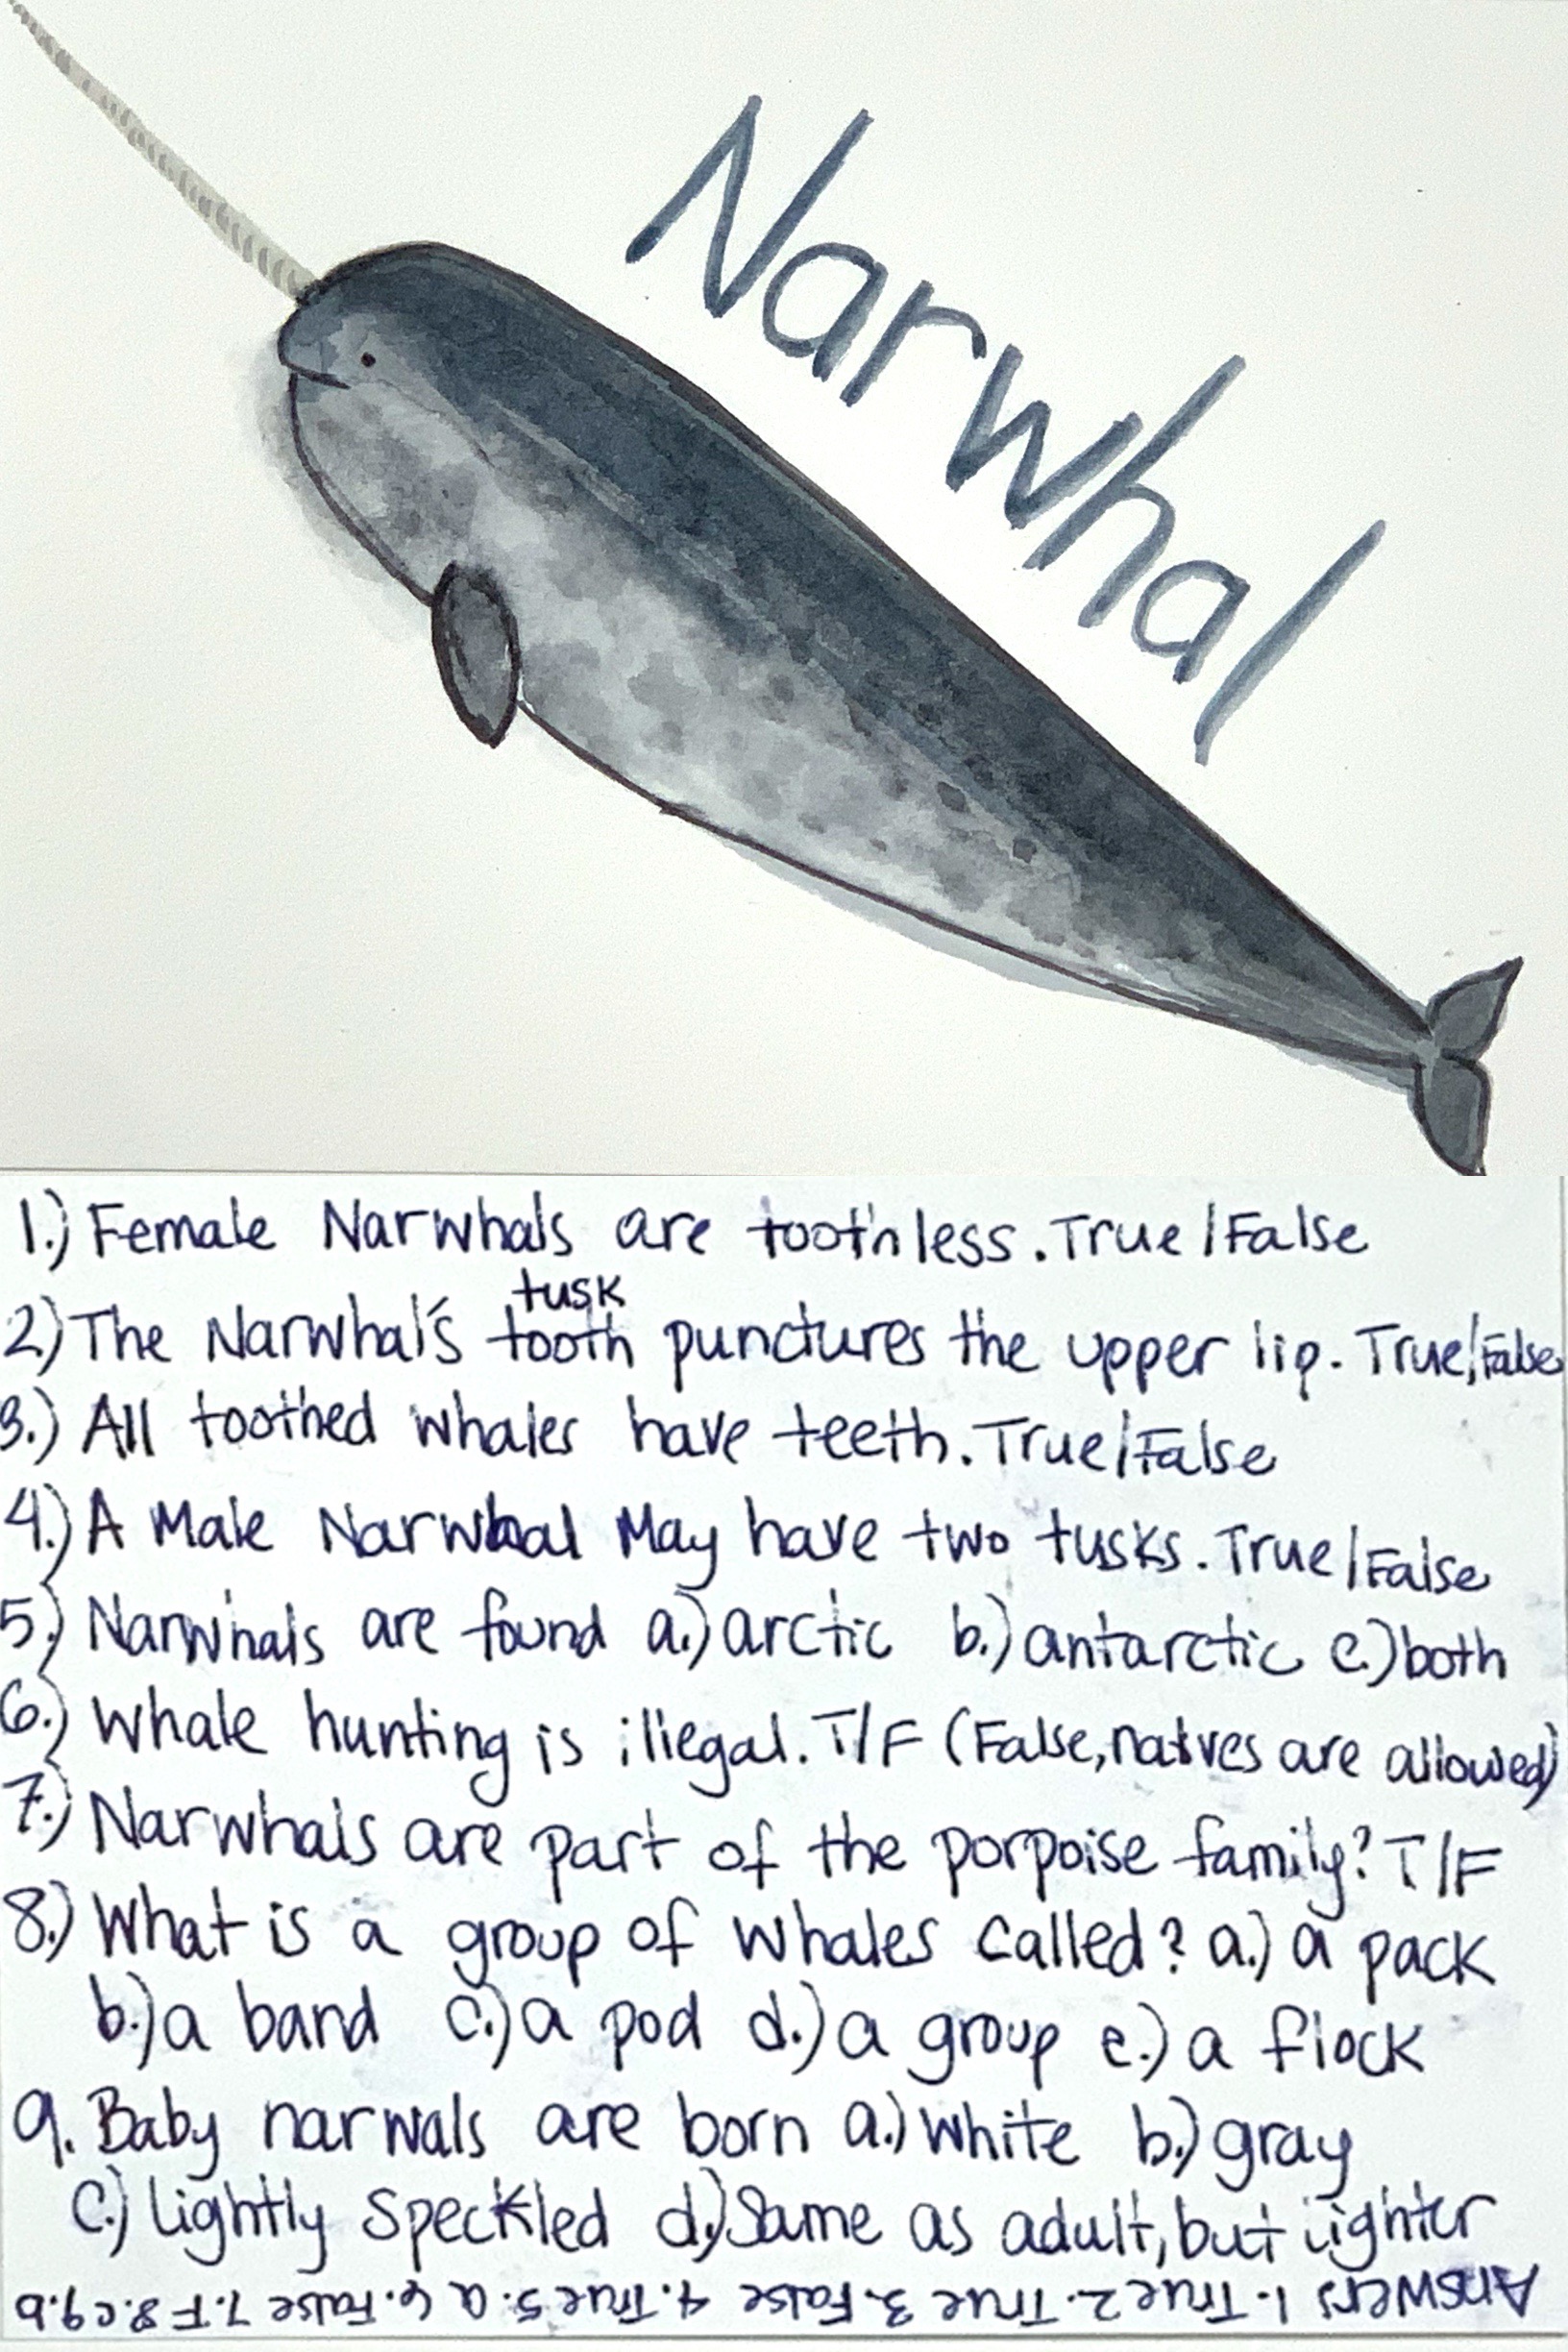 Narwhal
1.) Female Narwhals are toothless. True/False
tusk
2.) The Narwhal's tooth punctures the upper lip. True/False
3.) All toothed whales have teeth. True/False
4.) A Male Narwhal May have two tusks. True/False
5.) Narwhals are found a.) arctic b.) antarctic c.) both
6.) Whale hunting is illegal. T/F (False, natives are allowed)
7.) Narwhals are part of the porpoise family? T/F
8.) What is a group of whales called? a.) a pack
b.) a band c.) a pod d.) a group e.) a flock
9. Baby narwals are born a.) white b.) gray
c.) lightly speckled d.) Same as adult, but lighter
Answers 1. True 2. True 3. False 4. True 5. a 6. False 7. F 8. c 9. b